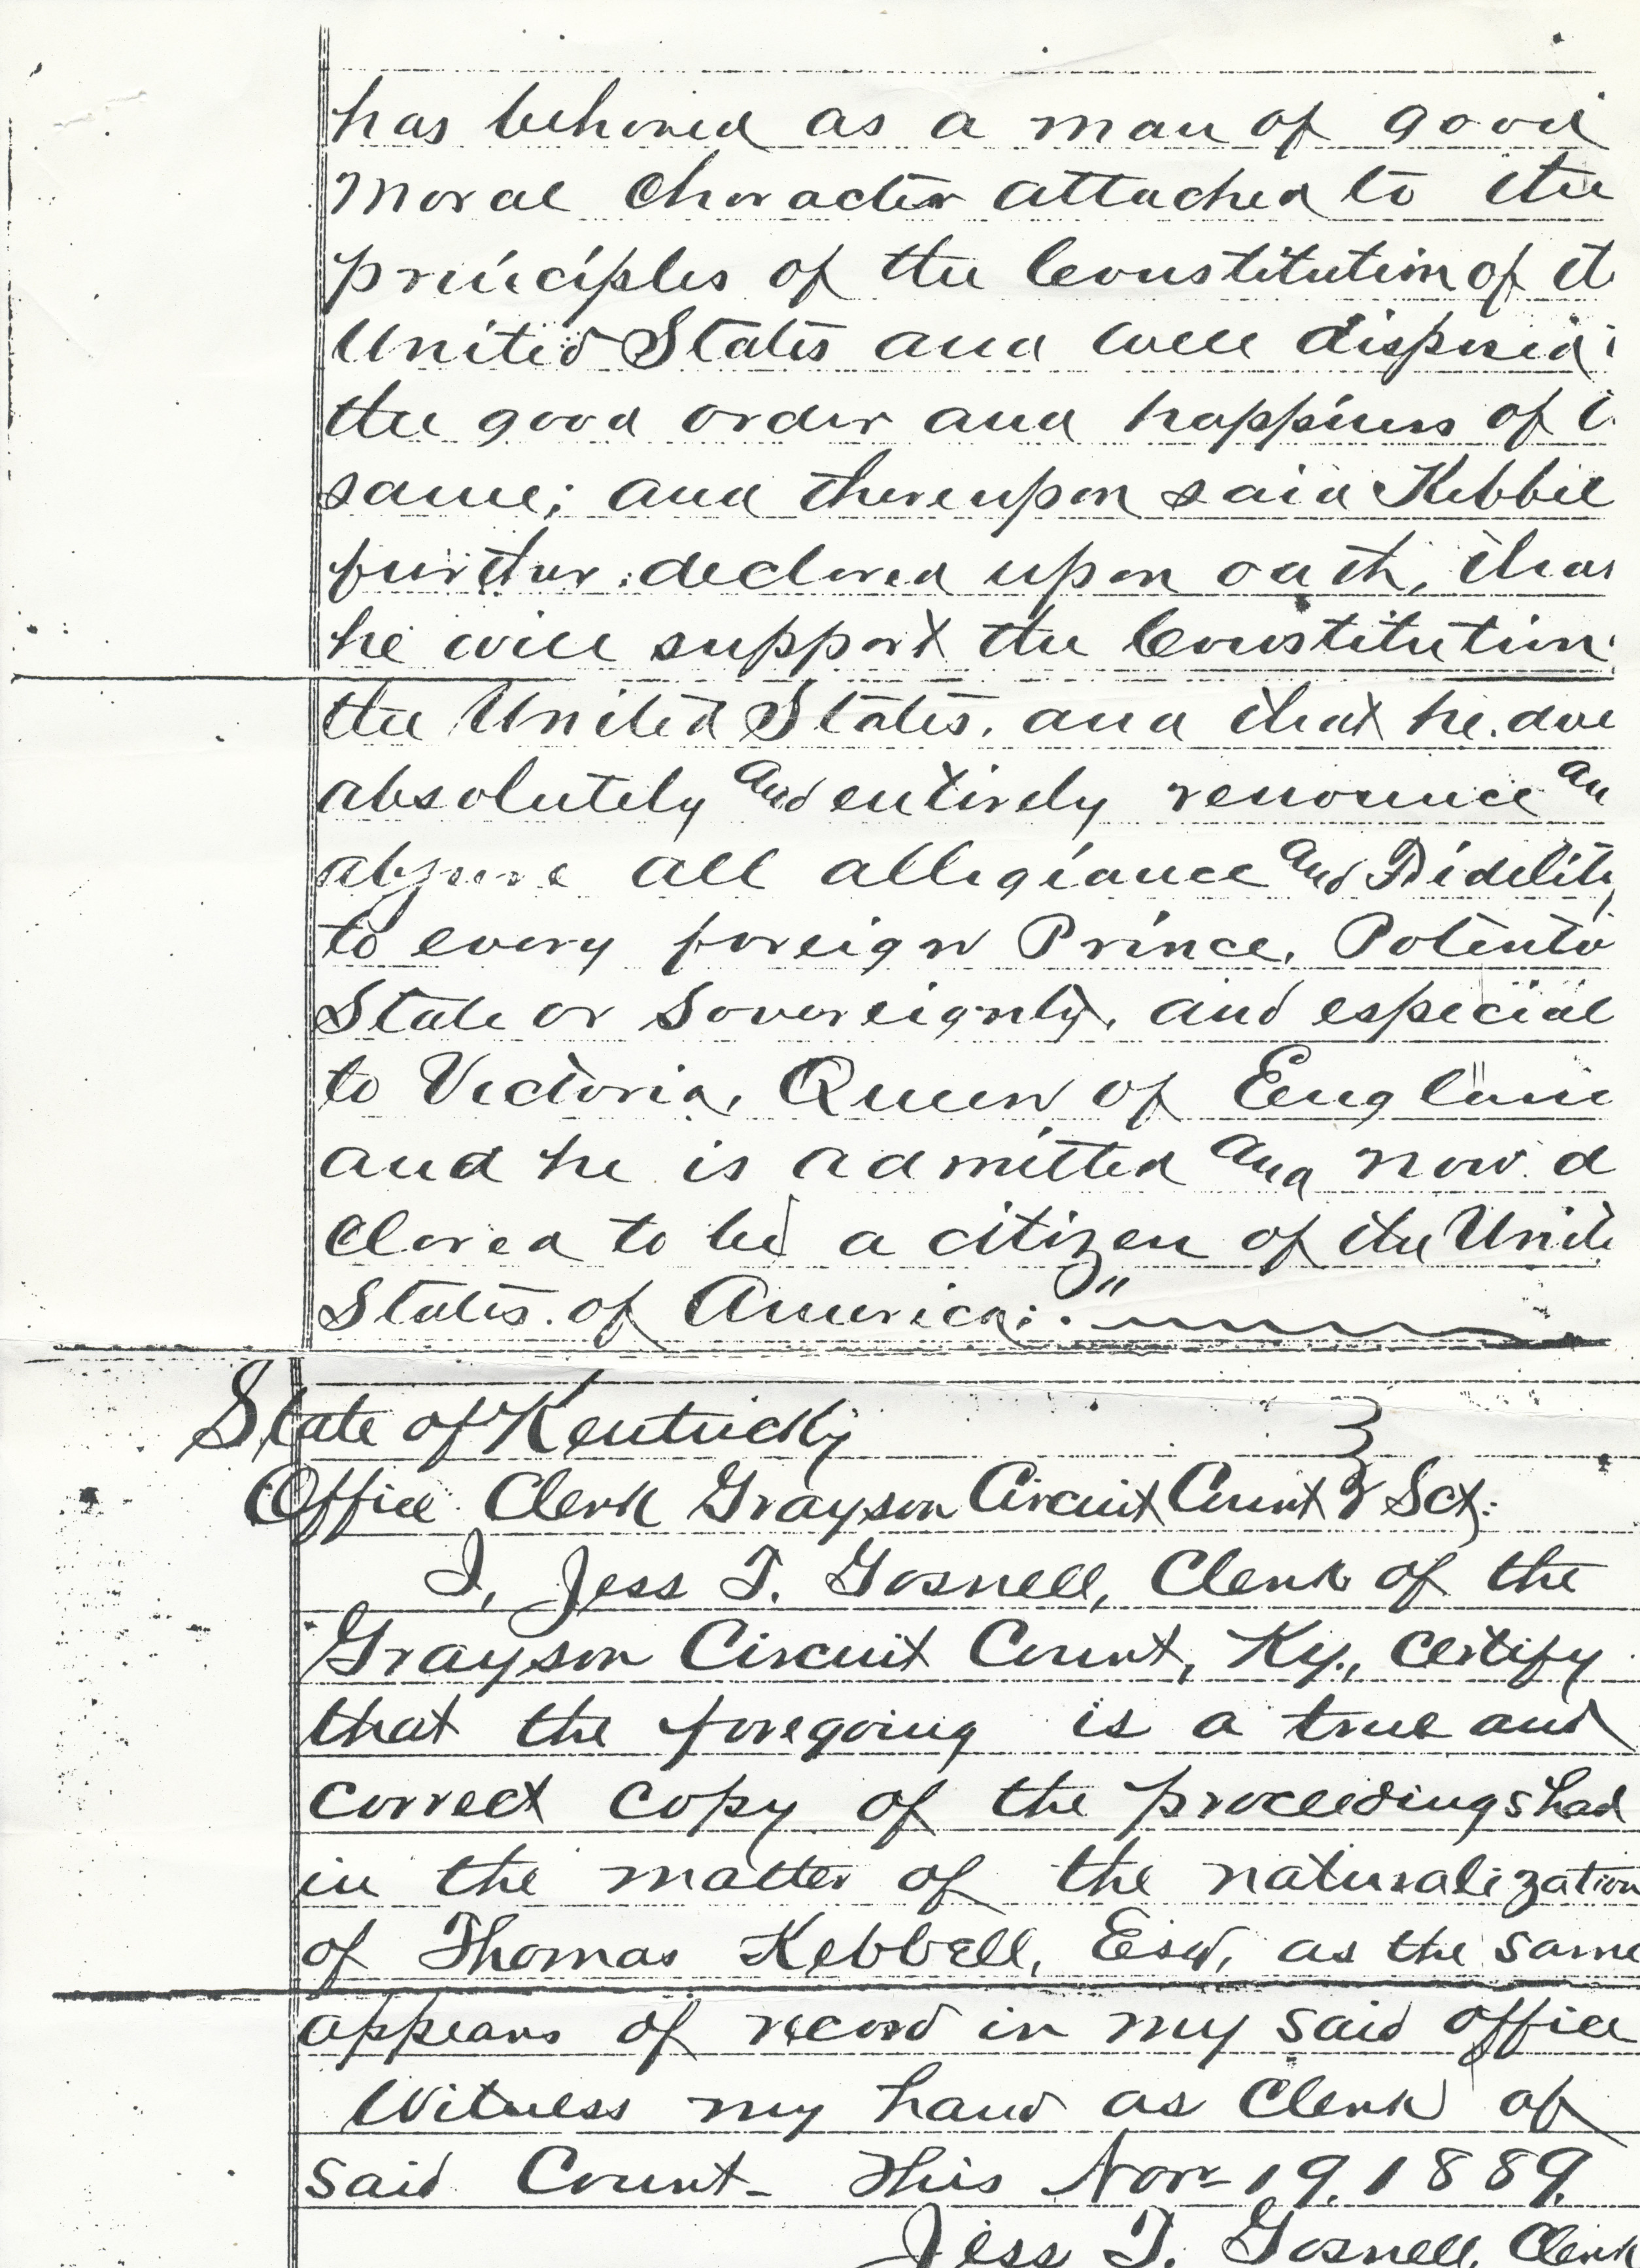 has behaved as a man of good
moral Character attached to the
principles of the Constitution of th
United States and well disposed
the good order and happiness of
same; and thereupon said Kebbel
further declared upon oath, that
he will support the Constitution
the United States, and that he doe
absolutely and entirely renounce an
abjure all allegiance and Fidelity
to every foreign Prince, Potenta
State or Sovereignty, and especial
to Victoria, Queen of England
and he is admitted and now de
clared to be a citizen of the Unite
States of America:."
State of Kentucky
Office Clerk Grayson Circuit Court } Sct:
I, Jess T. Gosnell, Clerk of the
Grayson Circuit Court, Ky., certify
that the foregoing is a true and
correct copy of the proceedings had
in the matter of the naturalization
of Thomas Kebbell, Esq, as the same
appears of record in my said office
Witness my hand as Clerk of
said Court - This Nov - 19, 1889.
Jess T. Gosnell, Clerk